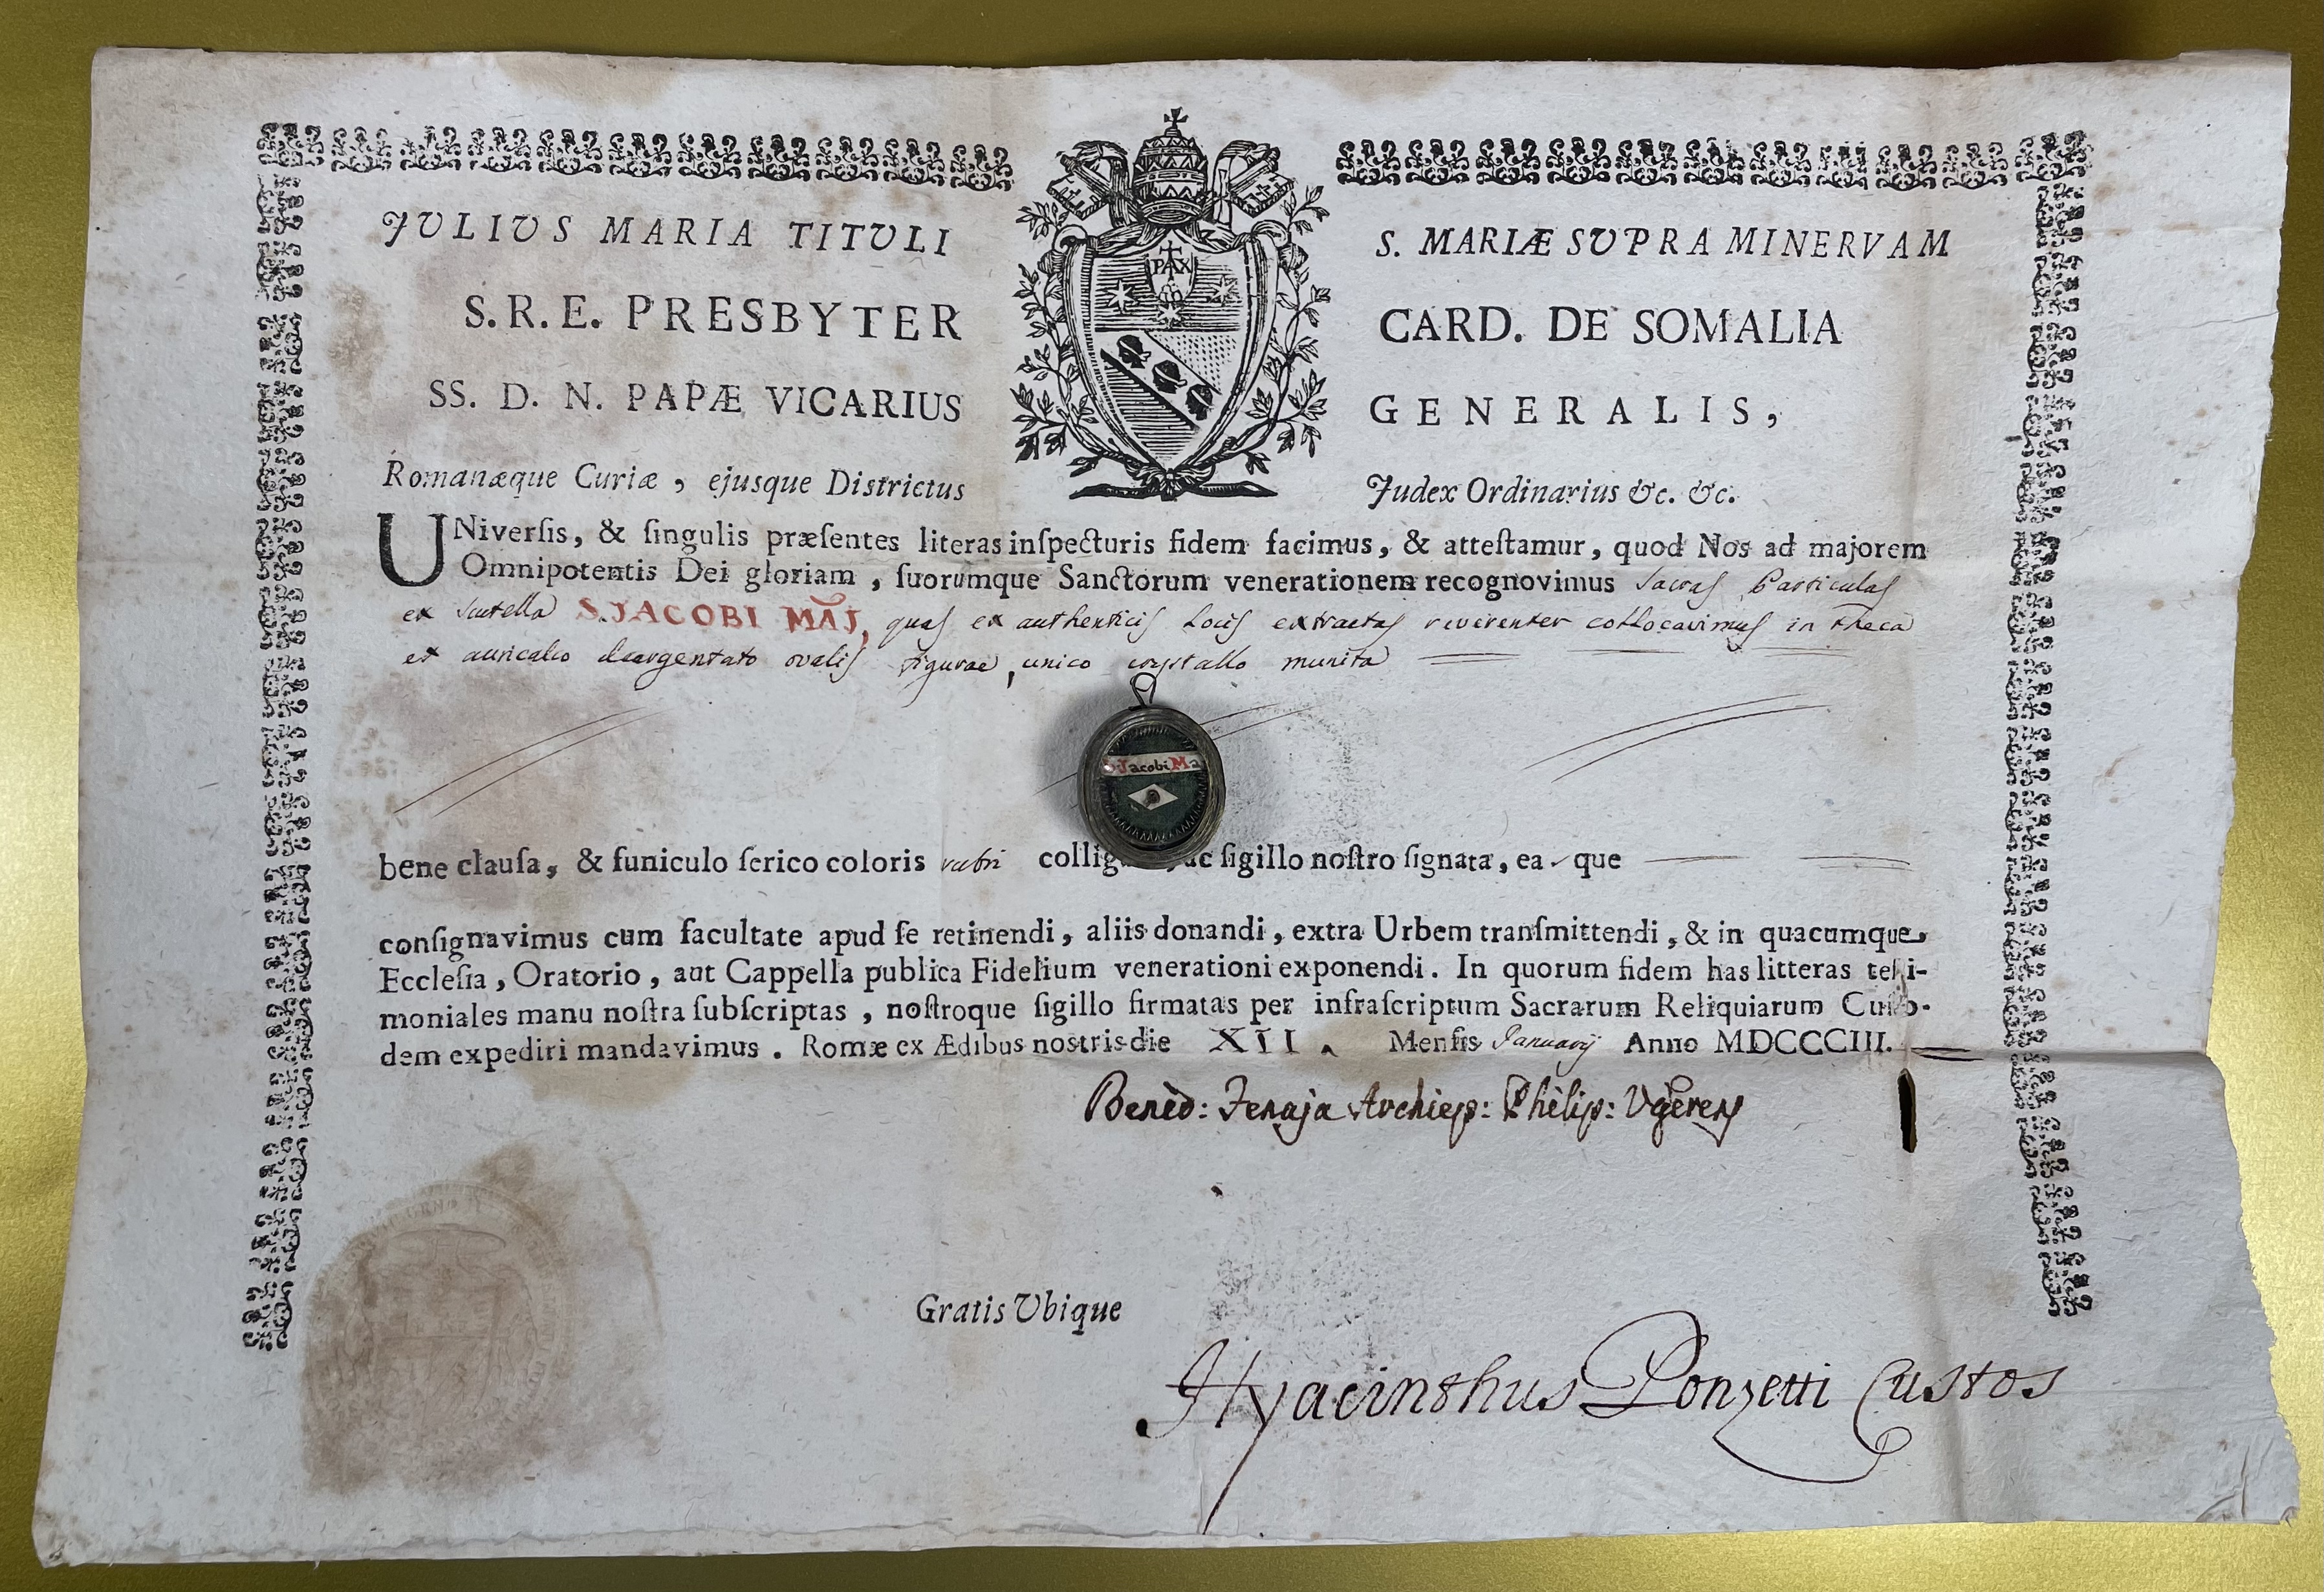 JULIUS MARIA TITULI S. MARIÆ SUPRA MINERVAM
PAX
S. R. E. PRESBYTER CARD. DE SOMALIA
SS. D. N. PAPÆ VICARIUS GENERALIS,
Romanæque Curiæ, ejusque Districtus Judex Ordinarius &c. &c.
UNiverſis, & ſingulis præſentes literas inſpecturis fidem facimus, & atteſtamur, quod Nos ad majorem
Omnipotentis Dei gloriam, ſuorumque Sanctorum venerationem recognovimus Sacras Particulas
ex Scutella S. JACOBI MAJ, quas ex authenticis Locis extractas reverenter collocavimus in Theca
ex auricalco deargentato ovalis figurae, unico crystallo munita
S Jacobi Ma
bene clauſa, & funiculo ſerico coloris rubri collig ac ſigillo noſtro ſignata, ea-que
conſignavimus cum facultate apud ſe retinendi, aliis donandi, extra Urbem tranſmittendi, & in quacumque
Eccleſia, Oratorio, aut Cappella publica Fidelium venerationi exponendi. In quorum fidem has litteras teſti-
moniales manu noſtra ſubſcriptas, noſtroque ſigillo firmatas per infraſcriptum Sacrarum Reliquiarum Cuſto-
dem expediri mandavimus. Romæ ex Ædibus nostris die XII. Menſis Januarij Anno MDCCCIII.
Bened: Fenaja Archiep: Philip: Vgeren
Gratis Ubique
Hyacinthus Ponzetti Custos